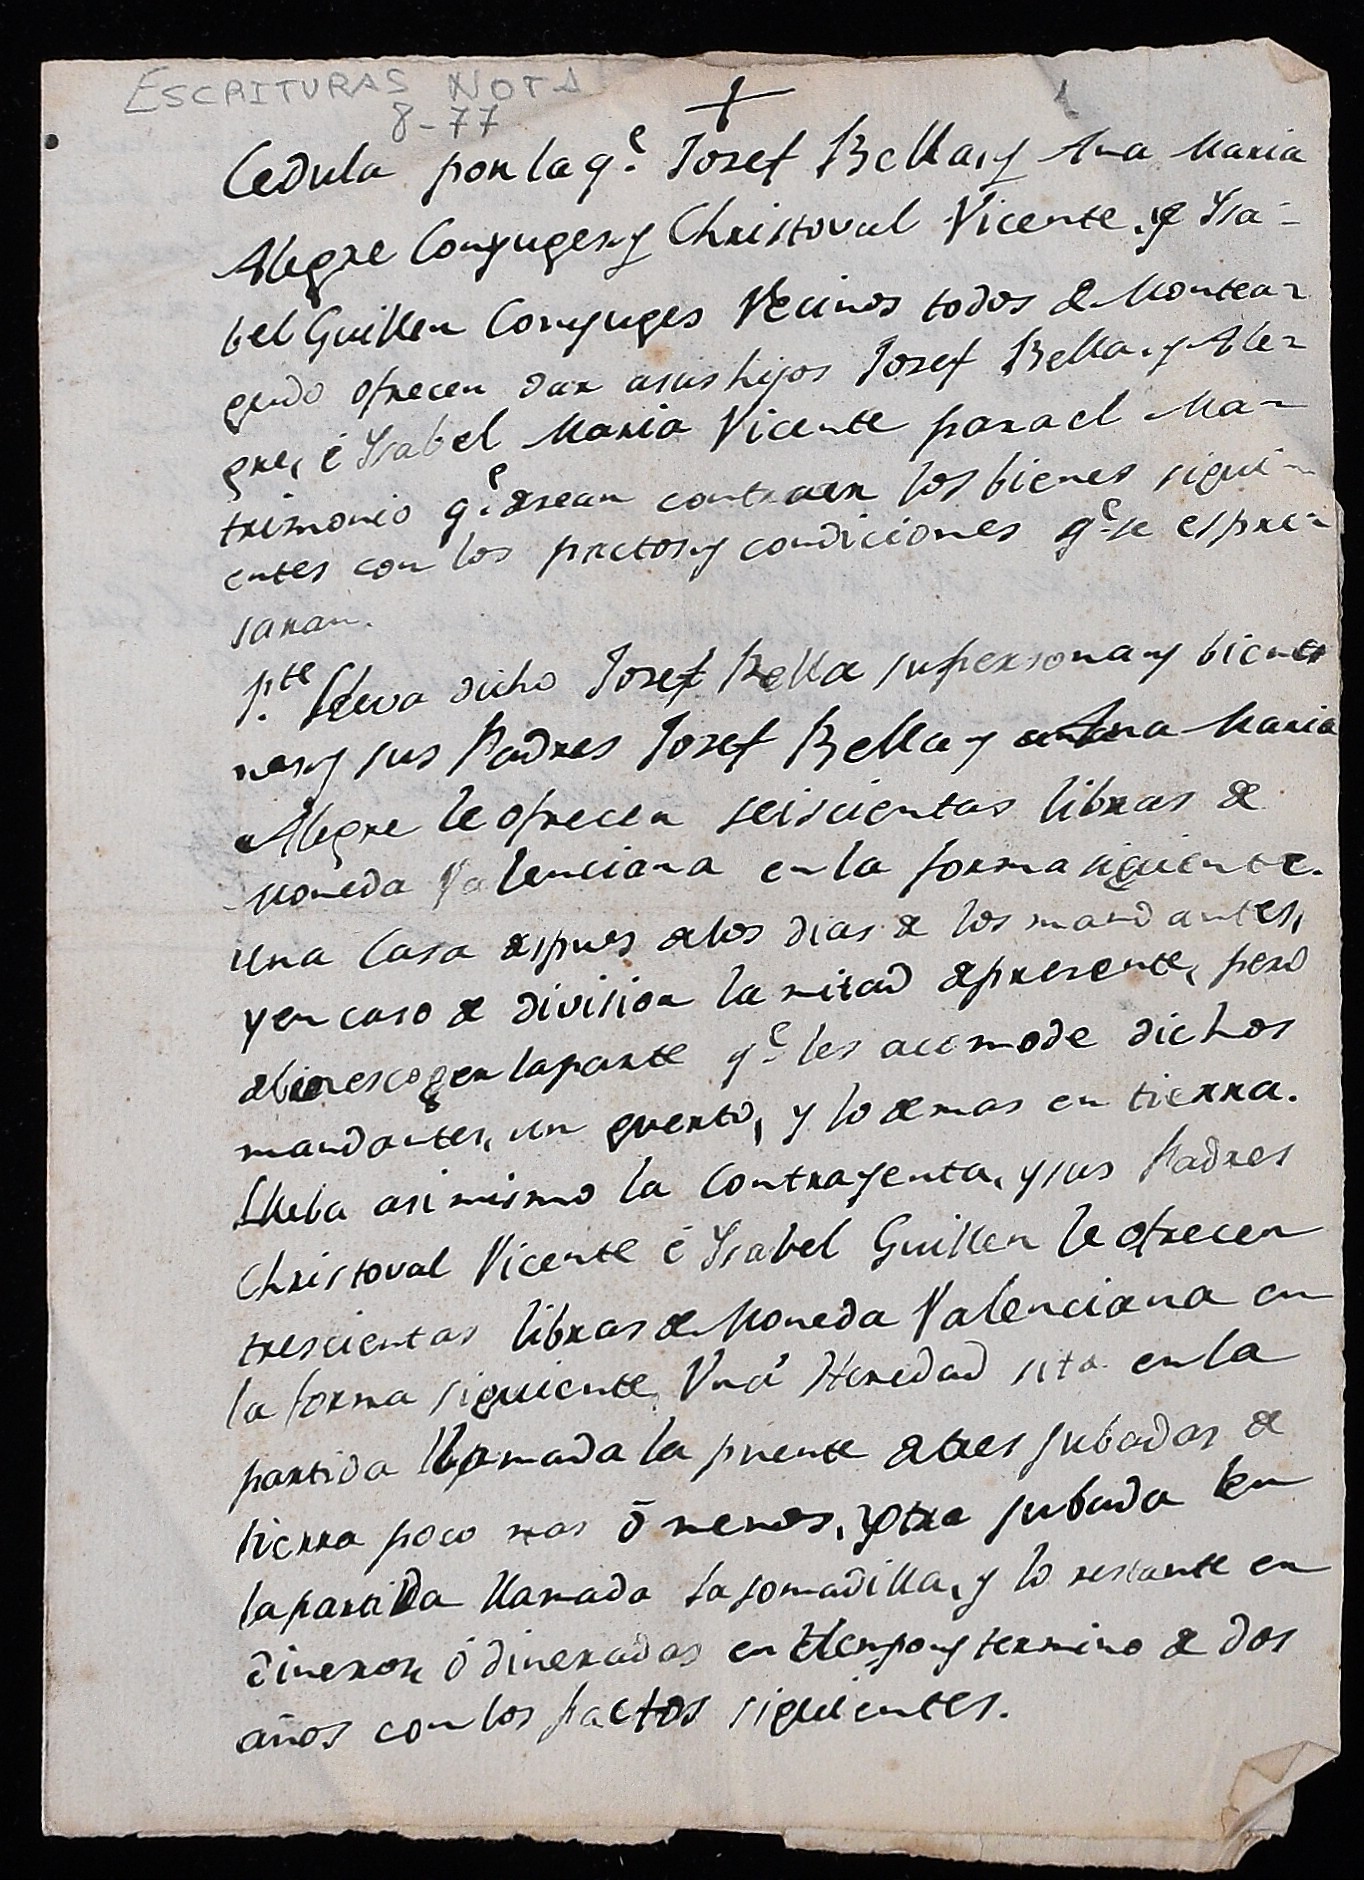 ESCRITURAS NOTA
8-77
+
Cedula por la q.e Josef Bella, y Ana Maria
Alegre Conyuges, y Christoval Vicente, y Ysa-
bel Guillen Conyuges Vecinos todos de Montea-
gudo ofrecen dar a sus hijos Josef Bella, y Ale-
gre, é Ysabel Maria Vicente para el Ma-
trimonio q.e desean contraer los bienes sigui-
entes con los pactos, y condiciones q.e se espre-
saran.
P.te lleva dicho Josef Bella su persona, y bienes
y sus Padres Josef Bella y Ana Maria
Alegre le ofrecen seiscientas libras de
Moneda Valenciana en la forma siguiente.
una Casa despues de los dias de los mandantes,
y en caso de division la mitad de presente, pero
escogen la parte q.e les acomode dichos
mandantes, un guerto, y lo demas en tierra.
Lleba asi mismo la Contrayenta, y sus Padres
Christoval Vicente é Ysabel Guillen le ofrecen
trescientas libras de Moneda Valenciana en
la forma siguiente, Una Heredad sita en la
partida llamada la puente de tres jubadas de
tierra poco mas ó menos, y otra jubada en
la partida llamada la jomadilla, y lo restante en
dineros, ó dineradas en tiempo, y termino de dos
años con los pactos siguientes.